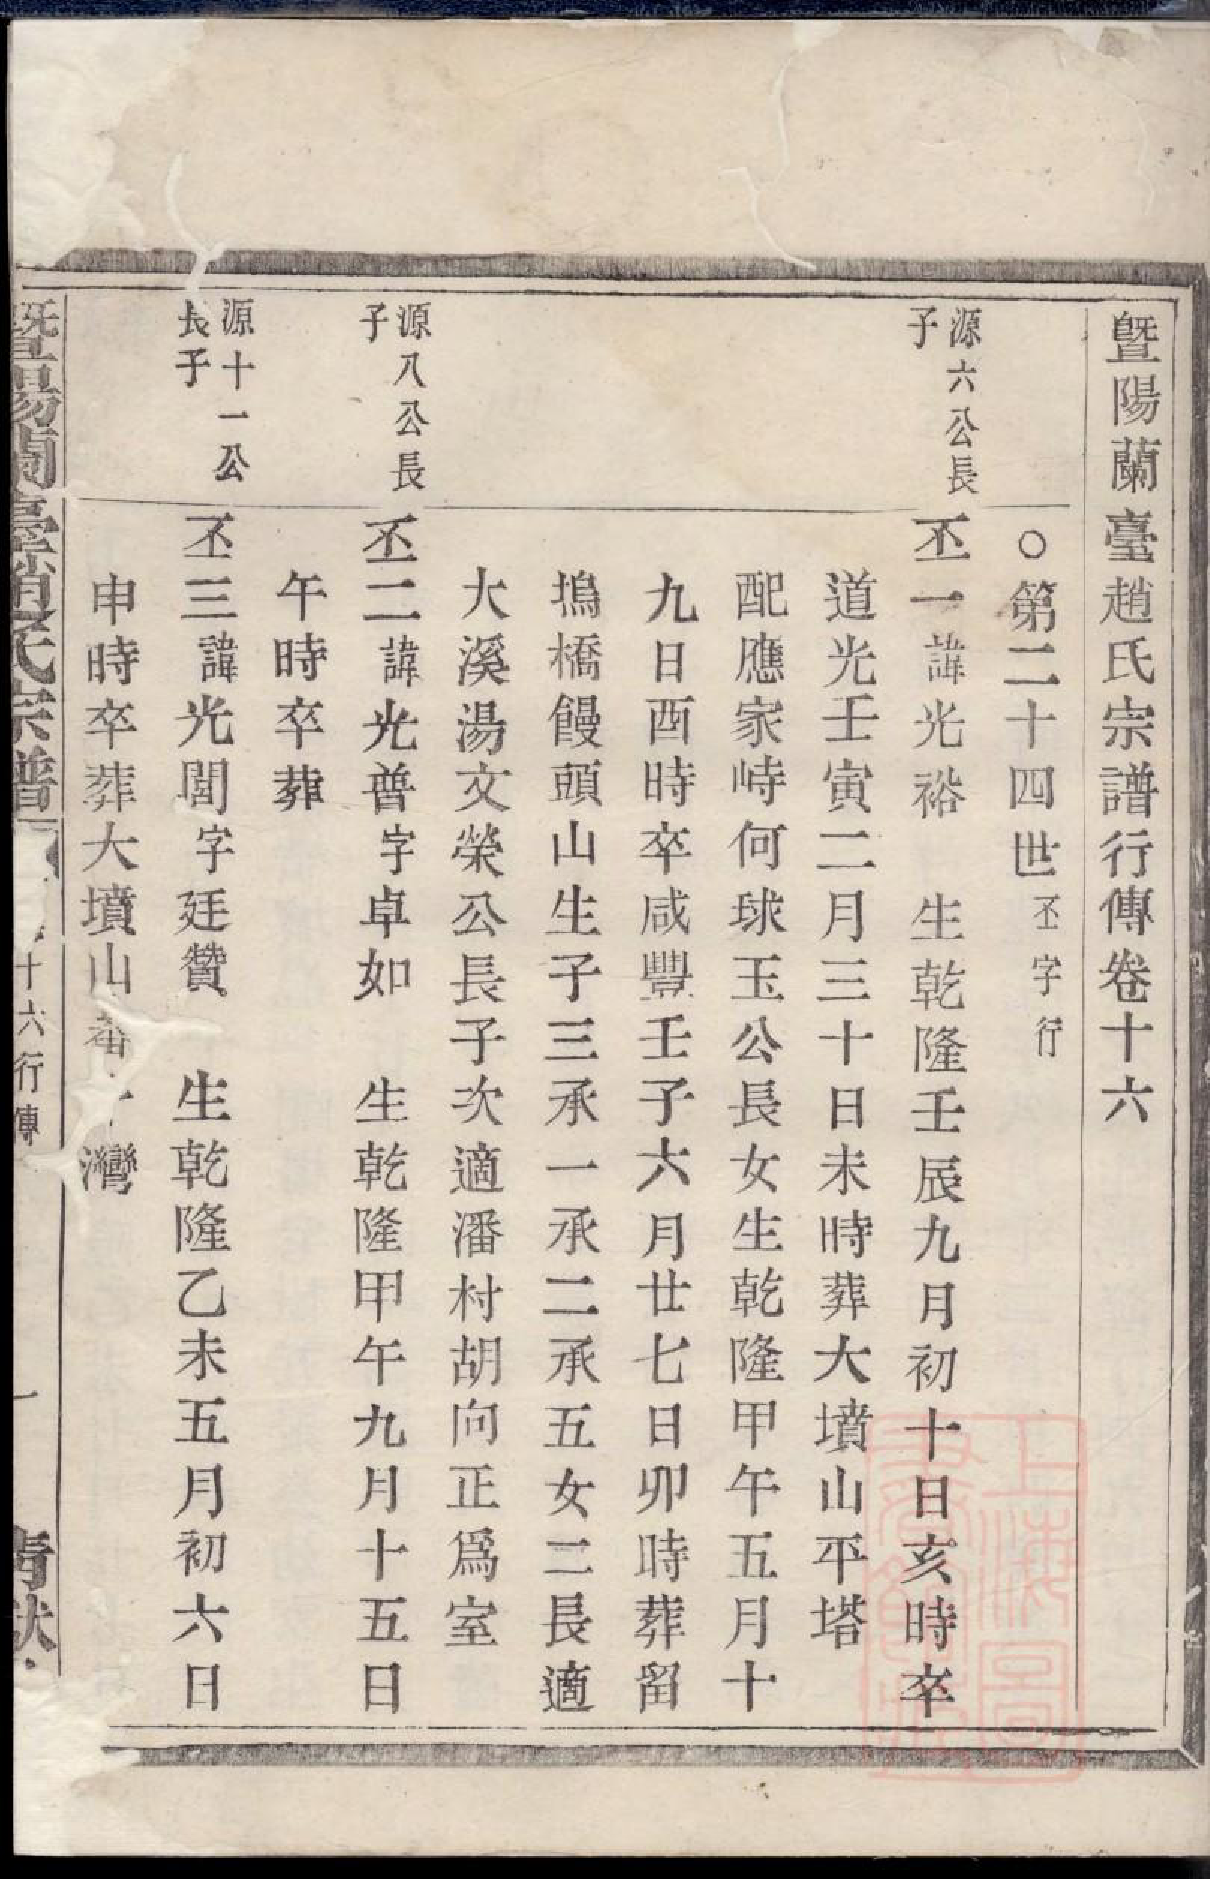 暨陽蘭臺趙氏宗譜行傳卷十六
○第二十四世丕字行
源六公長
子
丕一諱光裕 生乾隆壬辰九月初十日亥時卒
道光壬寅二月三十日未時葬大墳山平塔
配應家峙何球玉公長女生乾隆甲午五月十
九日酉時卒咸豐壬子六月廿七日卯時葬留
塢橋饅頭山生子三承一承二承五女二長適
大溪湯文榮公長子次適潘村胡向正為室
源八公長
子
丕二諱光普字卓如 生乾隆甲午九月十五日
午時卒葬
源十一公
長子
丕三諱光閭字廷贊 生乾隆乙未五月初六日
申時卒葬大墳山 灣
暨陽蘭臺趙氏宗譜 十六行傳 一
上海圖
書館藏